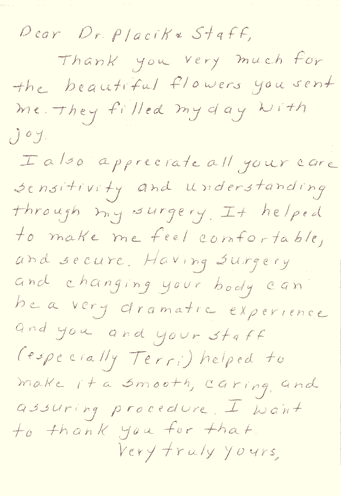 Dear Dr. Placik & Staff,
Thank you very much for
the beautiful flowers you sent
me. They filled my day with
joy.
I also appreciate all your care
sensitivity and understanding
through my surgery. It helped
to make me feel comfortable,
and secure. Having surgery
and changing your body can
be a very dramatic experience
and you and your staff
(especially Terri) helped to
make it a smooth, caring, and
assuring procedure. I want
to thank you for that
Very truly yours,